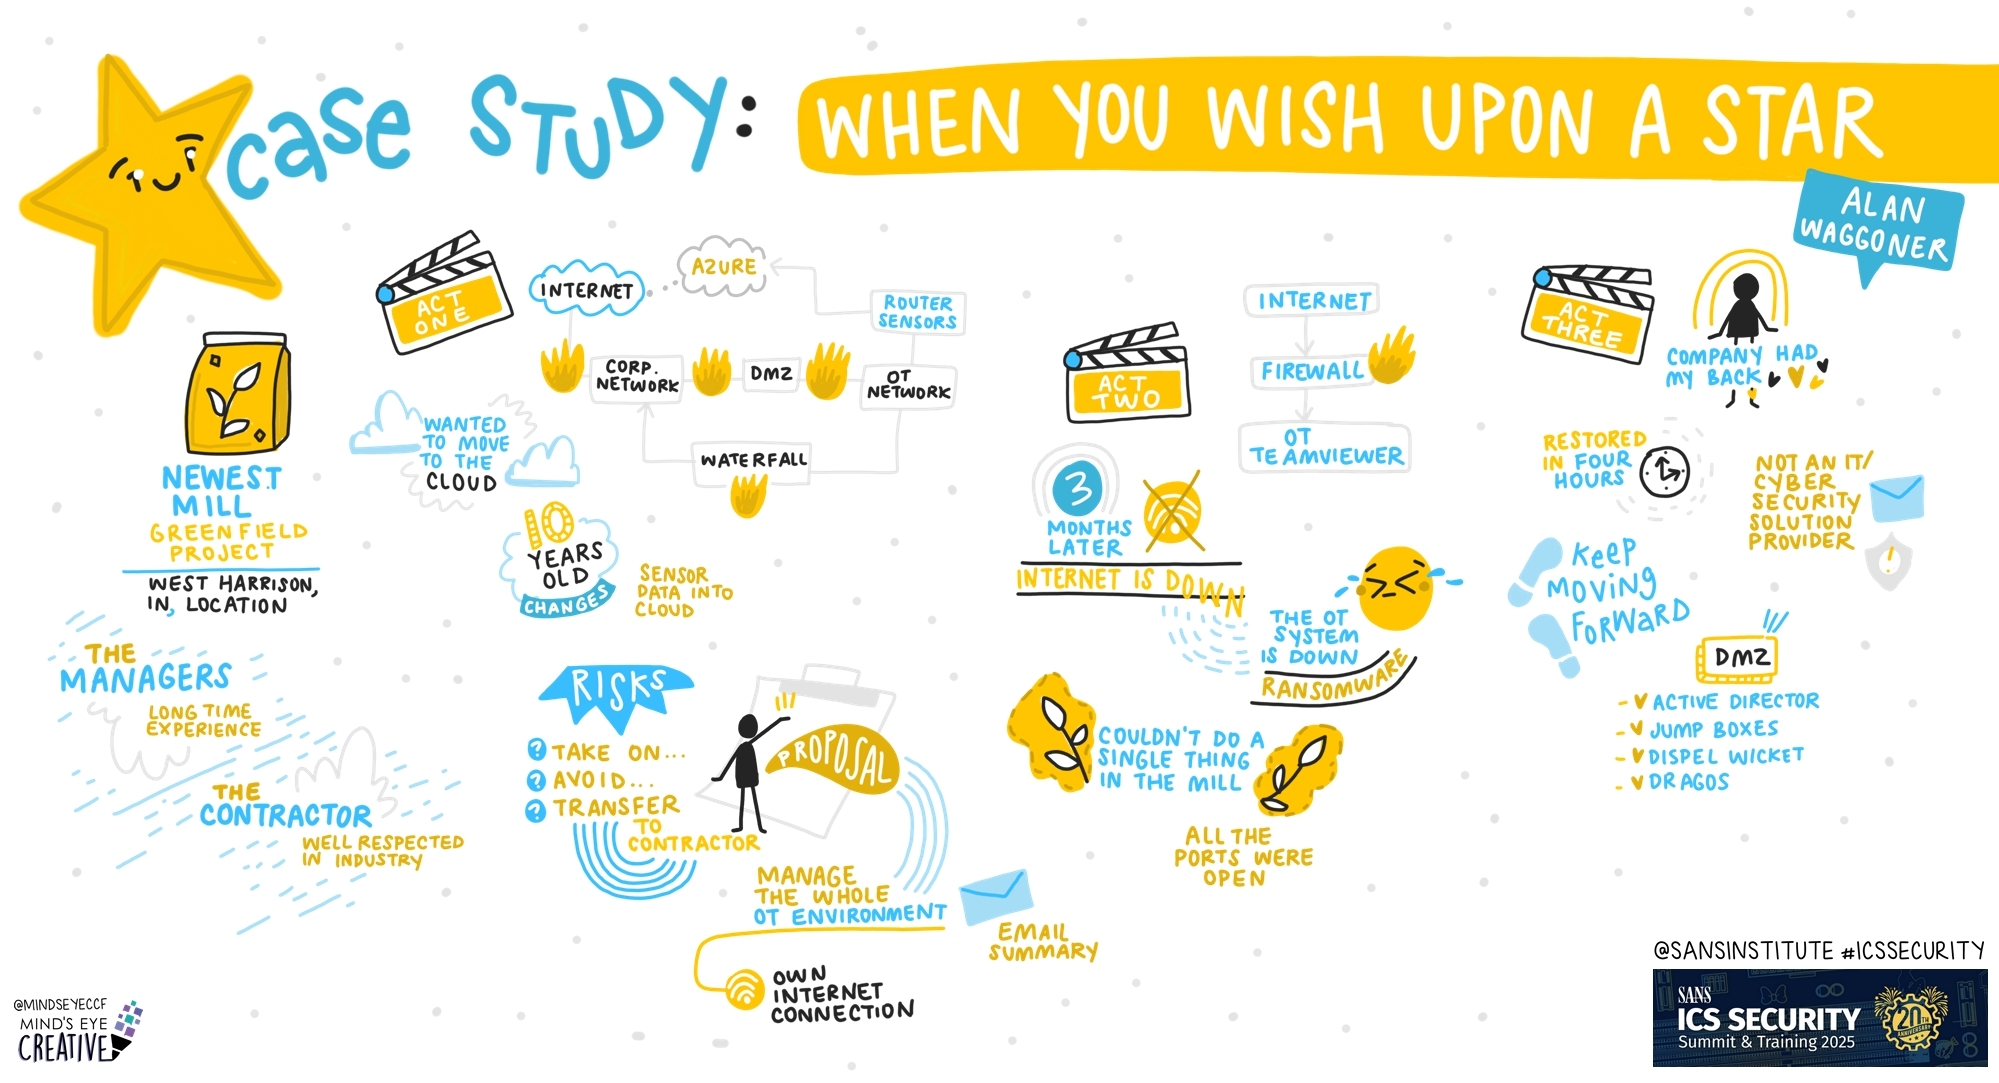 CASE STUDY:
WHEN YOU WISH UPON A STAR
ALAN
WAGGONER
NEWEST
MILL
GREENFIELD
PROJECT
WEST HARRISON,
IN, LOCATION
THE
MANAGERS
LONG TIME
EXPERIENCE
THE
CONTRACTOR
WELL RESPECTED
IN INDUSTRY
ACT
ONE
INTERNET
AZURE
ROUTER
SENSORS
CORP.
NETWORK
DMZ
OT
NETWORK
WATERFALL
WANTED
TO MOVE
TO THE
CLOUD
10
YEARS
OLD
CHANGES
SENSOR
DATA INTO
CLOUD
RISKS
? TAKE ON...
? AVOID...
? TRANSFER
TO
CONTRACTOR
PROPOSAL
MANAGE
THE WHOLE
OT ENVIRONMENT
OWN
INTERNET
CONNECTION
EMAIL
SUMMARY
ACT
TWO
INTERNET
FIREWALL
OT
TEAMVIEWER
3
MONTHS
LATER
INTERNET IS DOWN
THE OT
SYSTEM
IS DOWN
RANSOMWARE
COULDN'T DO A
SINGLE THING
IN THE MILL
ALL THE
PORTS WERE
OPEN
ACT
THREE
COMPANY HAD
MY BACK
RESTORED
IN FOUR
HOURS
NOT AN IT/
CYBER
SECURITY
SOLUTION
PROVIDER
!
KEEP
MOVING
FORWARD
DMZ
- ACTIVE DIRECTOR
- JUMP BOXES
- DISPEL WICKET
- DRAGOS
@SANSINSTITUTE #ICSSECURITY
SANS
ICS SECURITY
Summit & Training 2025
20TH
ANNIVERSARY
@MINDSEYECCF
MIND'S EYE
CREATIVE